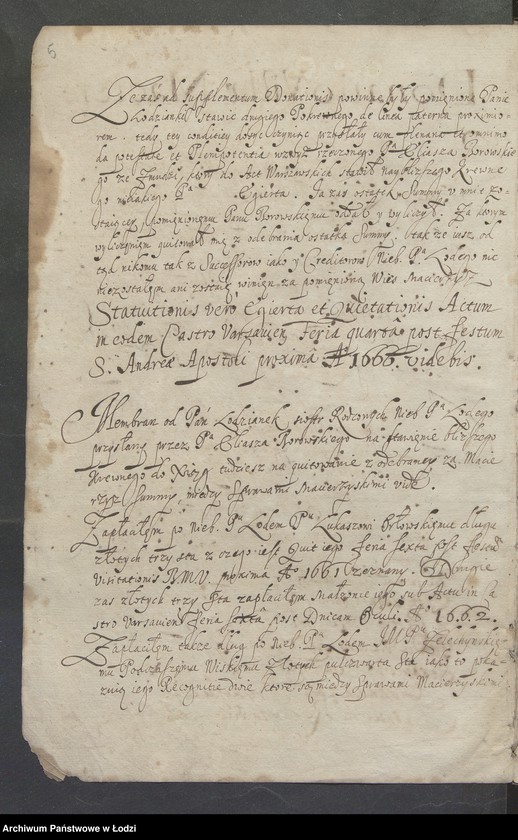 5
Ze zaś ad supplementum Donationis powinne były pomienione Panie
Lodzianki stawić drugiego Pokrewnego de linea paterna proximio-
rem. tedy tey conditiey dosyć czyniąc przysłały cum plenaria et omnimo-
da potestate et Plenipotentia wzwyż rzeczonego Pa Eliasza Borowskie
go ze Zmudzi, ktory do Act Warszawskich stawił naybliższego Krewne
go niejakiego Pa Egierta. Ja zaś ostatek Summy u mnie zo-
staiącey pomienionemu Panu Borowskiemu oddał y wyliczył. Za ktorym
wyliczeniem quitował mię z odebrania ostatka Summy. Itak ze iusz od
tych nikomu tak z Successorow iako y Creditorow Nieb. Pa Lodego nic
niezostałem ani zostaię winien za pomienioną Wieś Macierzysz
Statuitionis vero Egierta et Quietationis Actum
in eodem Castro Varsavien. feria quarta post festum
S. Andreæ Apostoli proxima Ao 1666. videbis.
Membran od Pań Lodzianek siostr Rodzonych Nieb Pa Lodego
przysłany przez Pa Eliasza Borowskiego na stawienie bliższego
Krewnego do Xiąg tudziesz na quitowanie z odebraney za Macie
rzysz Summy, między Sprawami Macierzyskimi vide.
Zapłaciłem po Nieb. Pu Lodem Pu Łukaszowi Orłowskiemu długu
złotych trzy sta z czego iest Quit iego feria sexta post festum
Visitationis B.M.V. proxima Ao 1661 zeznany. Drugie
zas złotych trzy sta zapłaciłem Małżonce iego sub Actu in Ca
stro Varsavien feria sexta post Dnicam Oculi Ao 1662.
Zapłaciłem także dług po Nieb. Pu Lodem JM Pu
mu Podstolemu Wiskiemu złotych pułczwarta sta iako to poka
zuią iego Recognitie dwie ktore są między Sprawami Macierzyskimi
Archiwum Państwowe w Łodzi